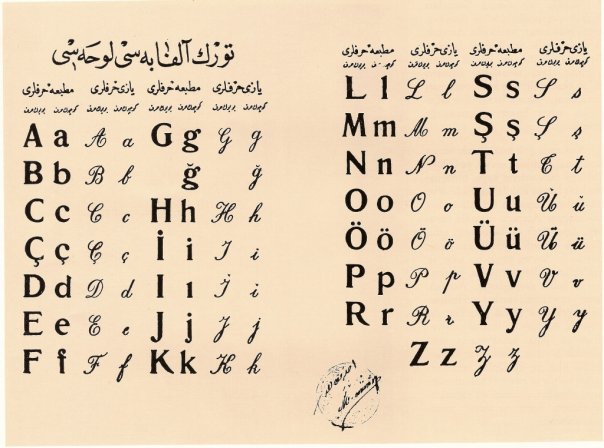 تورك آلفابه سى لوحه سى
مطبعه حرفلرى يازى حرفلرى مطبعه حرفلرى يازى حرفلرى
A a A a G g G g
B b B b ğ ğ
C c C c H h H h
Ç ç Ç ç İ i I i
D d D d I ı İ i
E e E e J j J j
F f F f K k K k
مطبعه حرفلرى يازى حرفلرى مطبعه حرفلرى يازى حرفلرى
L l L l S s S s
M m M m Ş ş Ş ş
N n N n T t T t
O o O o U u U u
Ö ö Ö ö Ü ü Ü ü
P p P p V v V v
R r R r Y y Y y
Z z Z z